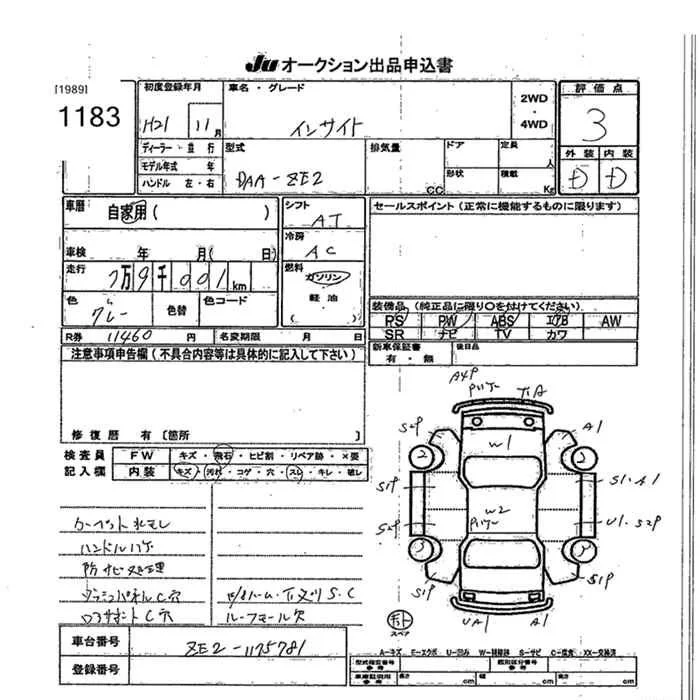 JU オークション出品申込書
[1989]
1183
初度登録年月
H21 11月
車名・グレード
インサイト
2WD
・
4WD
評価点
3
外装 内装
D D
ディーラー・並行
モデル年式 年
ハンドル 左・右
型式
DAA-ZE2
排気量
CC
ドア
定員
人
形状
積載
Kg
車歴
自家用( )
シフト
AT
セールスポイント(正常に機能するものに限ります)
車検 年 月( 日)
冷房
AC
走行 7万9千001km
燃料
ガソリン
・
軽油
( )
色
グレー
色替
色コード
装備品(純正品に限り○を付けてください)
PS PW ABS エアB AW
SR ナビ TV カワ
R券 11460 円
名変期限 月 日
新車保証書
有・無
後日品
注意事項申告欄(不具合内容等は具体的に記入して下さい)
修復歴 有〔箇所 〕
検査員
記入欄
FW キズ・飛石・ヒビ割・リペア跡・×要
内装 キズ・汚れ・コゲ・穴・スレ・キレ・破レ
カーペット水モレ
ハンドルハゲ
防サビ処理
ダッシュパネルC穴
ロアサポートC穴
ルーフモール欠
A4P
S2P
A1
W1
2
2
S1P
S1・A1
W2
S2P
U1・S2P
3
3
S1P
S1P
UA1
A1
スペア
A-キズ E-エクボ U-凹み W-補修跡 S-サビ C-腐食 XX-交換済
車台番号 ZE2-1175781
登録番号
型式指定番号
参考
類別区分番号
参考
車庫証明用
参考
長さ cm
幅 cm
高さ cm